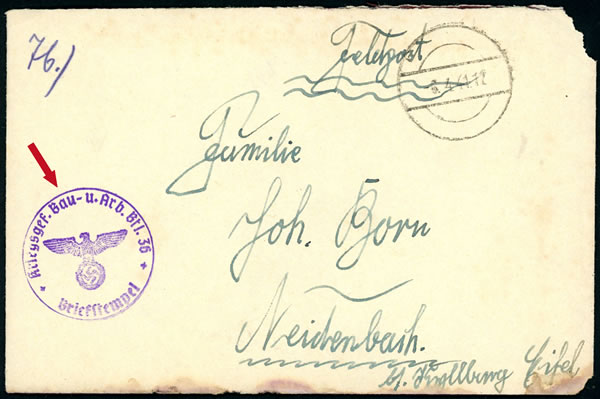 76.)
Feldpost
5.4.41.12
Familie
Joh. Born
Neidenbach.
b/. Kyllburg Eifel
Kriegsgef. Bau- u. Arb. Btl. 36
Briefstempel